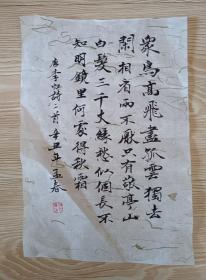 眾鳥高飛盡孤雲獨去
閑相看兩不厭只有敬亭山
白髮三千丈緣愁似個長不
知明鏡里何處得秋霜
唐李白詩二首辛丑年孟春